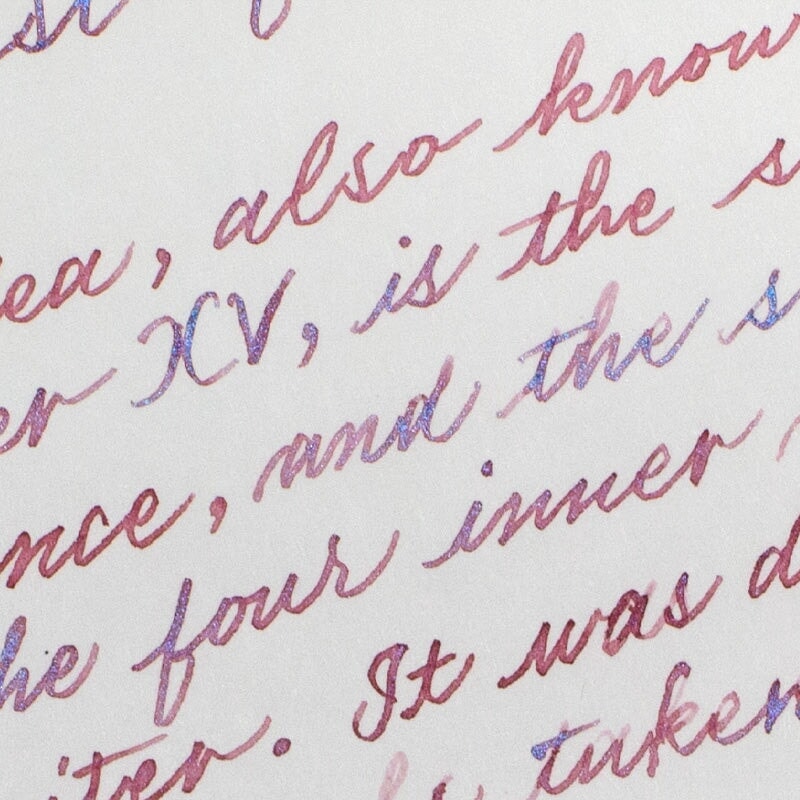 ea, also know
er XV, is the s
nce, and the s
he four inner
iter. It was d
taken